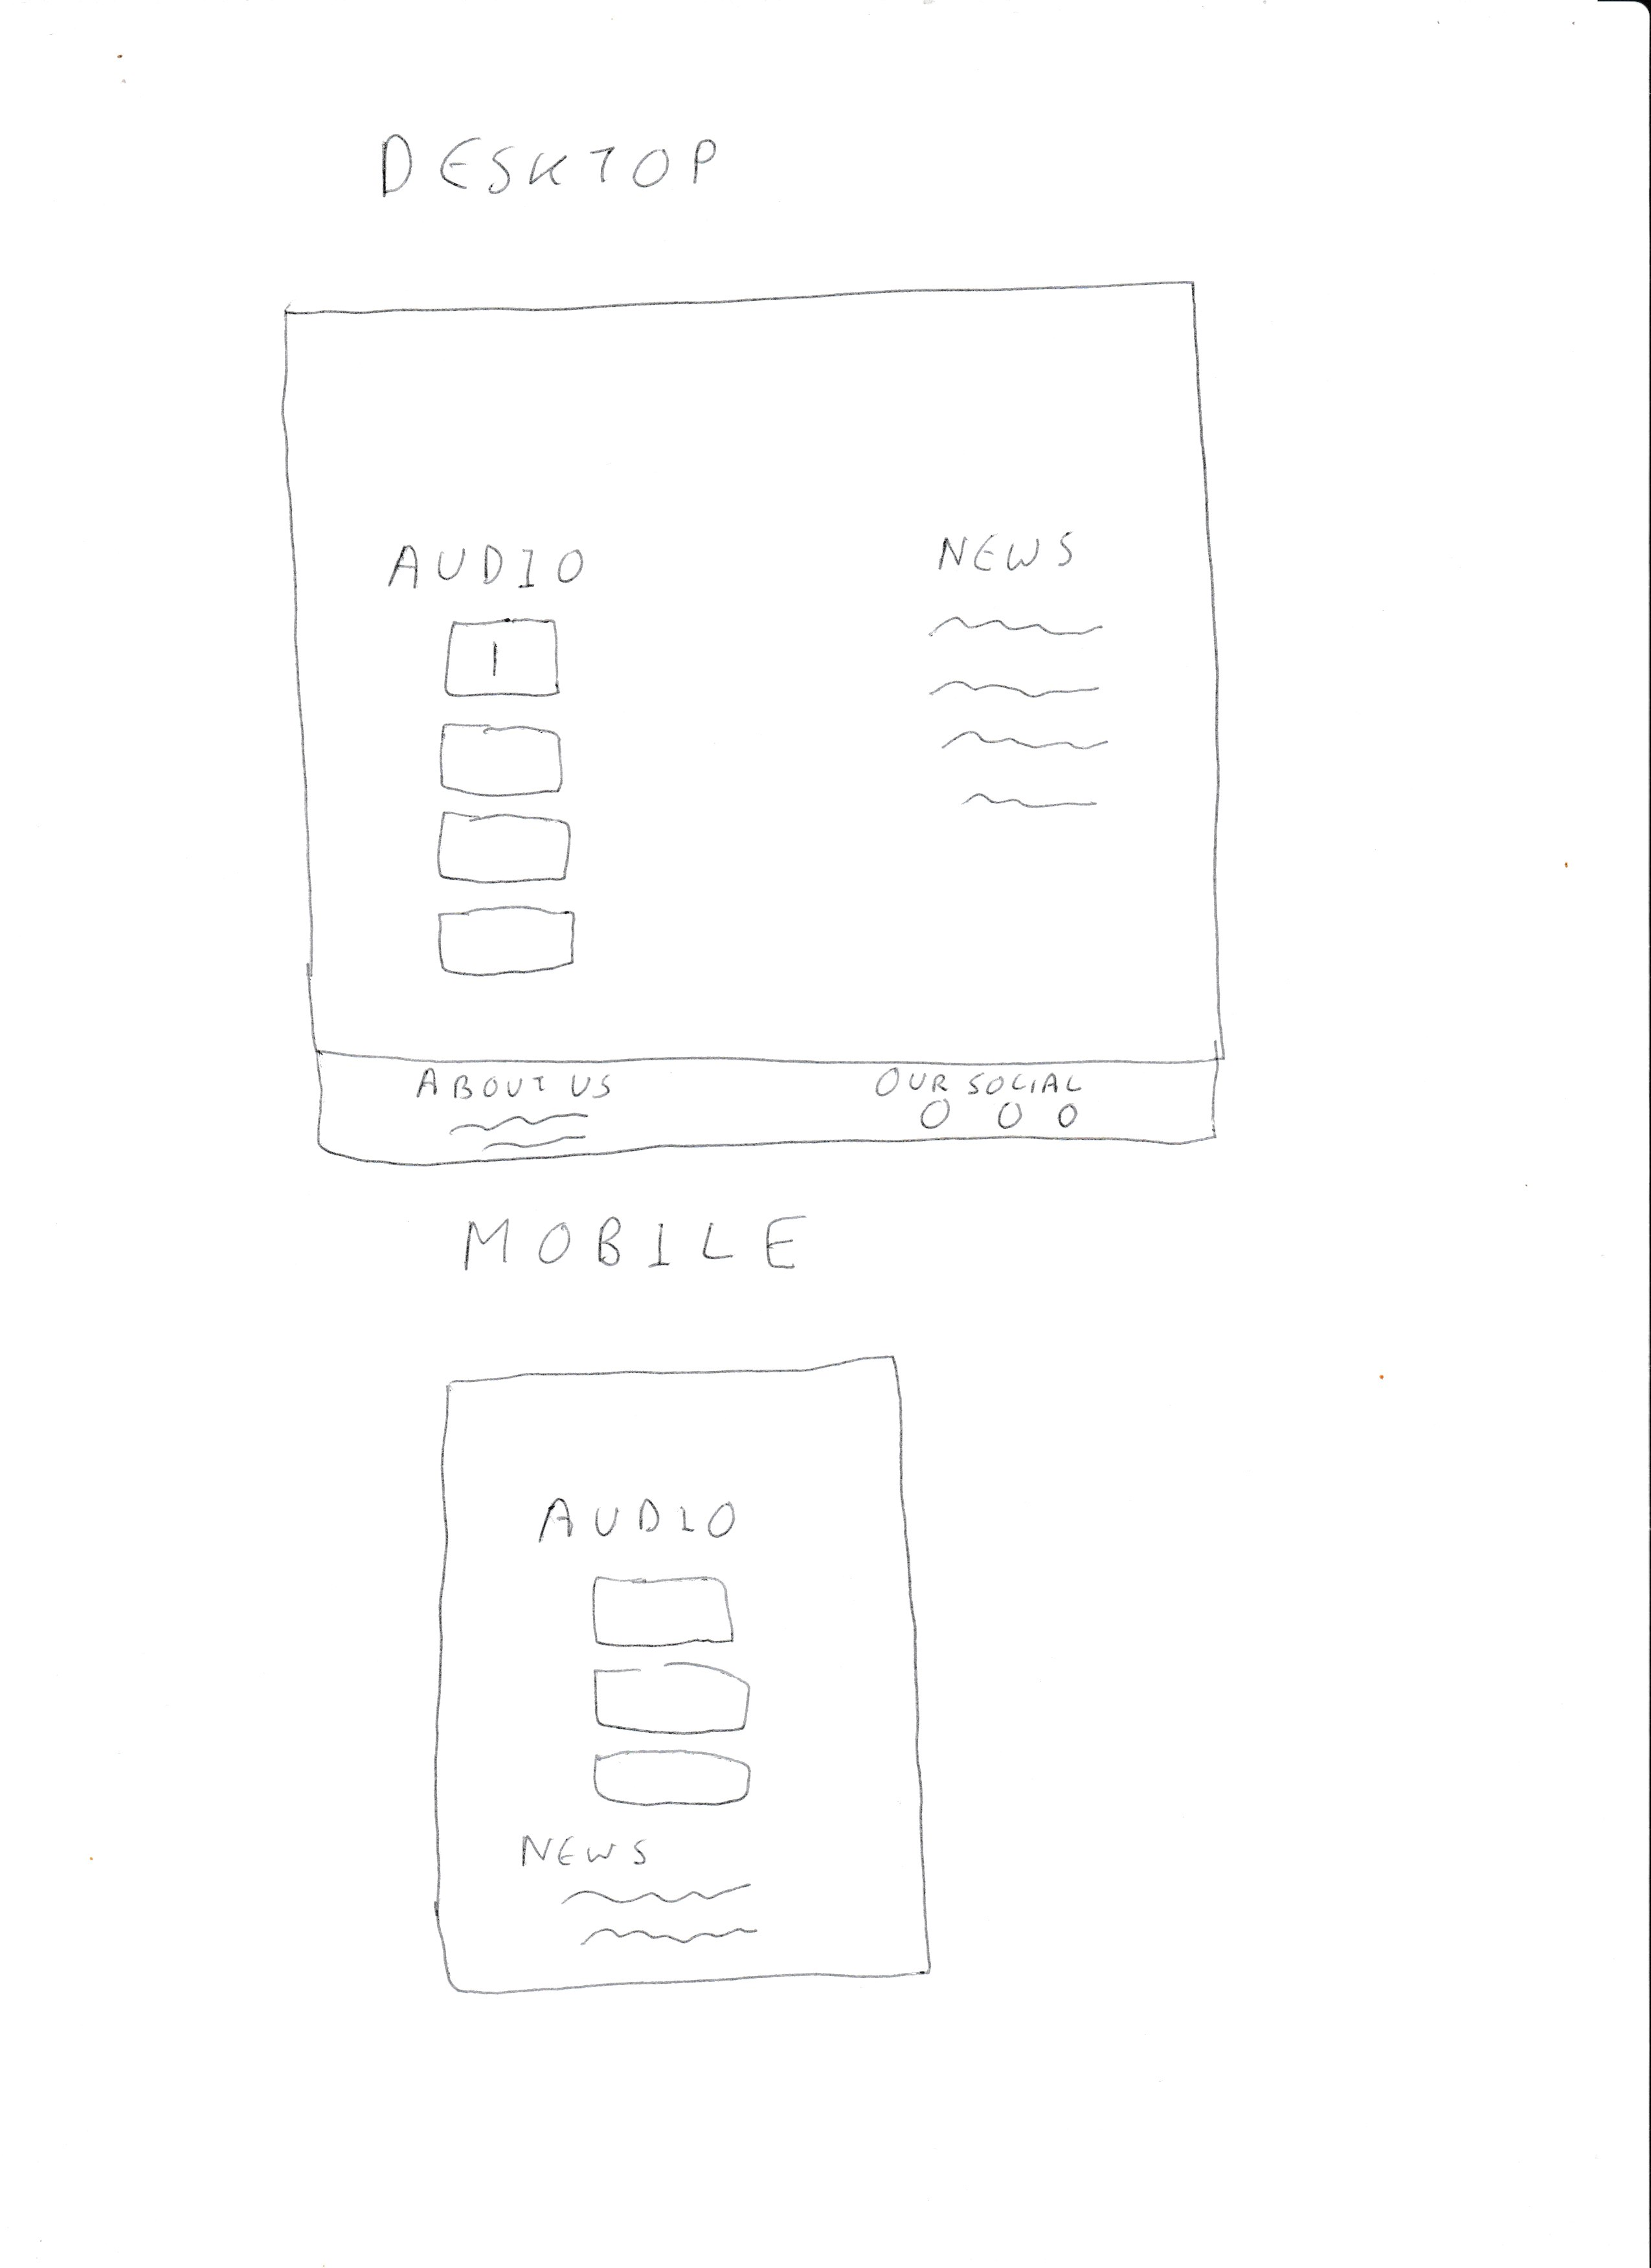 DESKTOP
AUDIO
NEWS
1
ABOUT US
OUR SOCIAL
MOBILE
AUDIO
NEWS